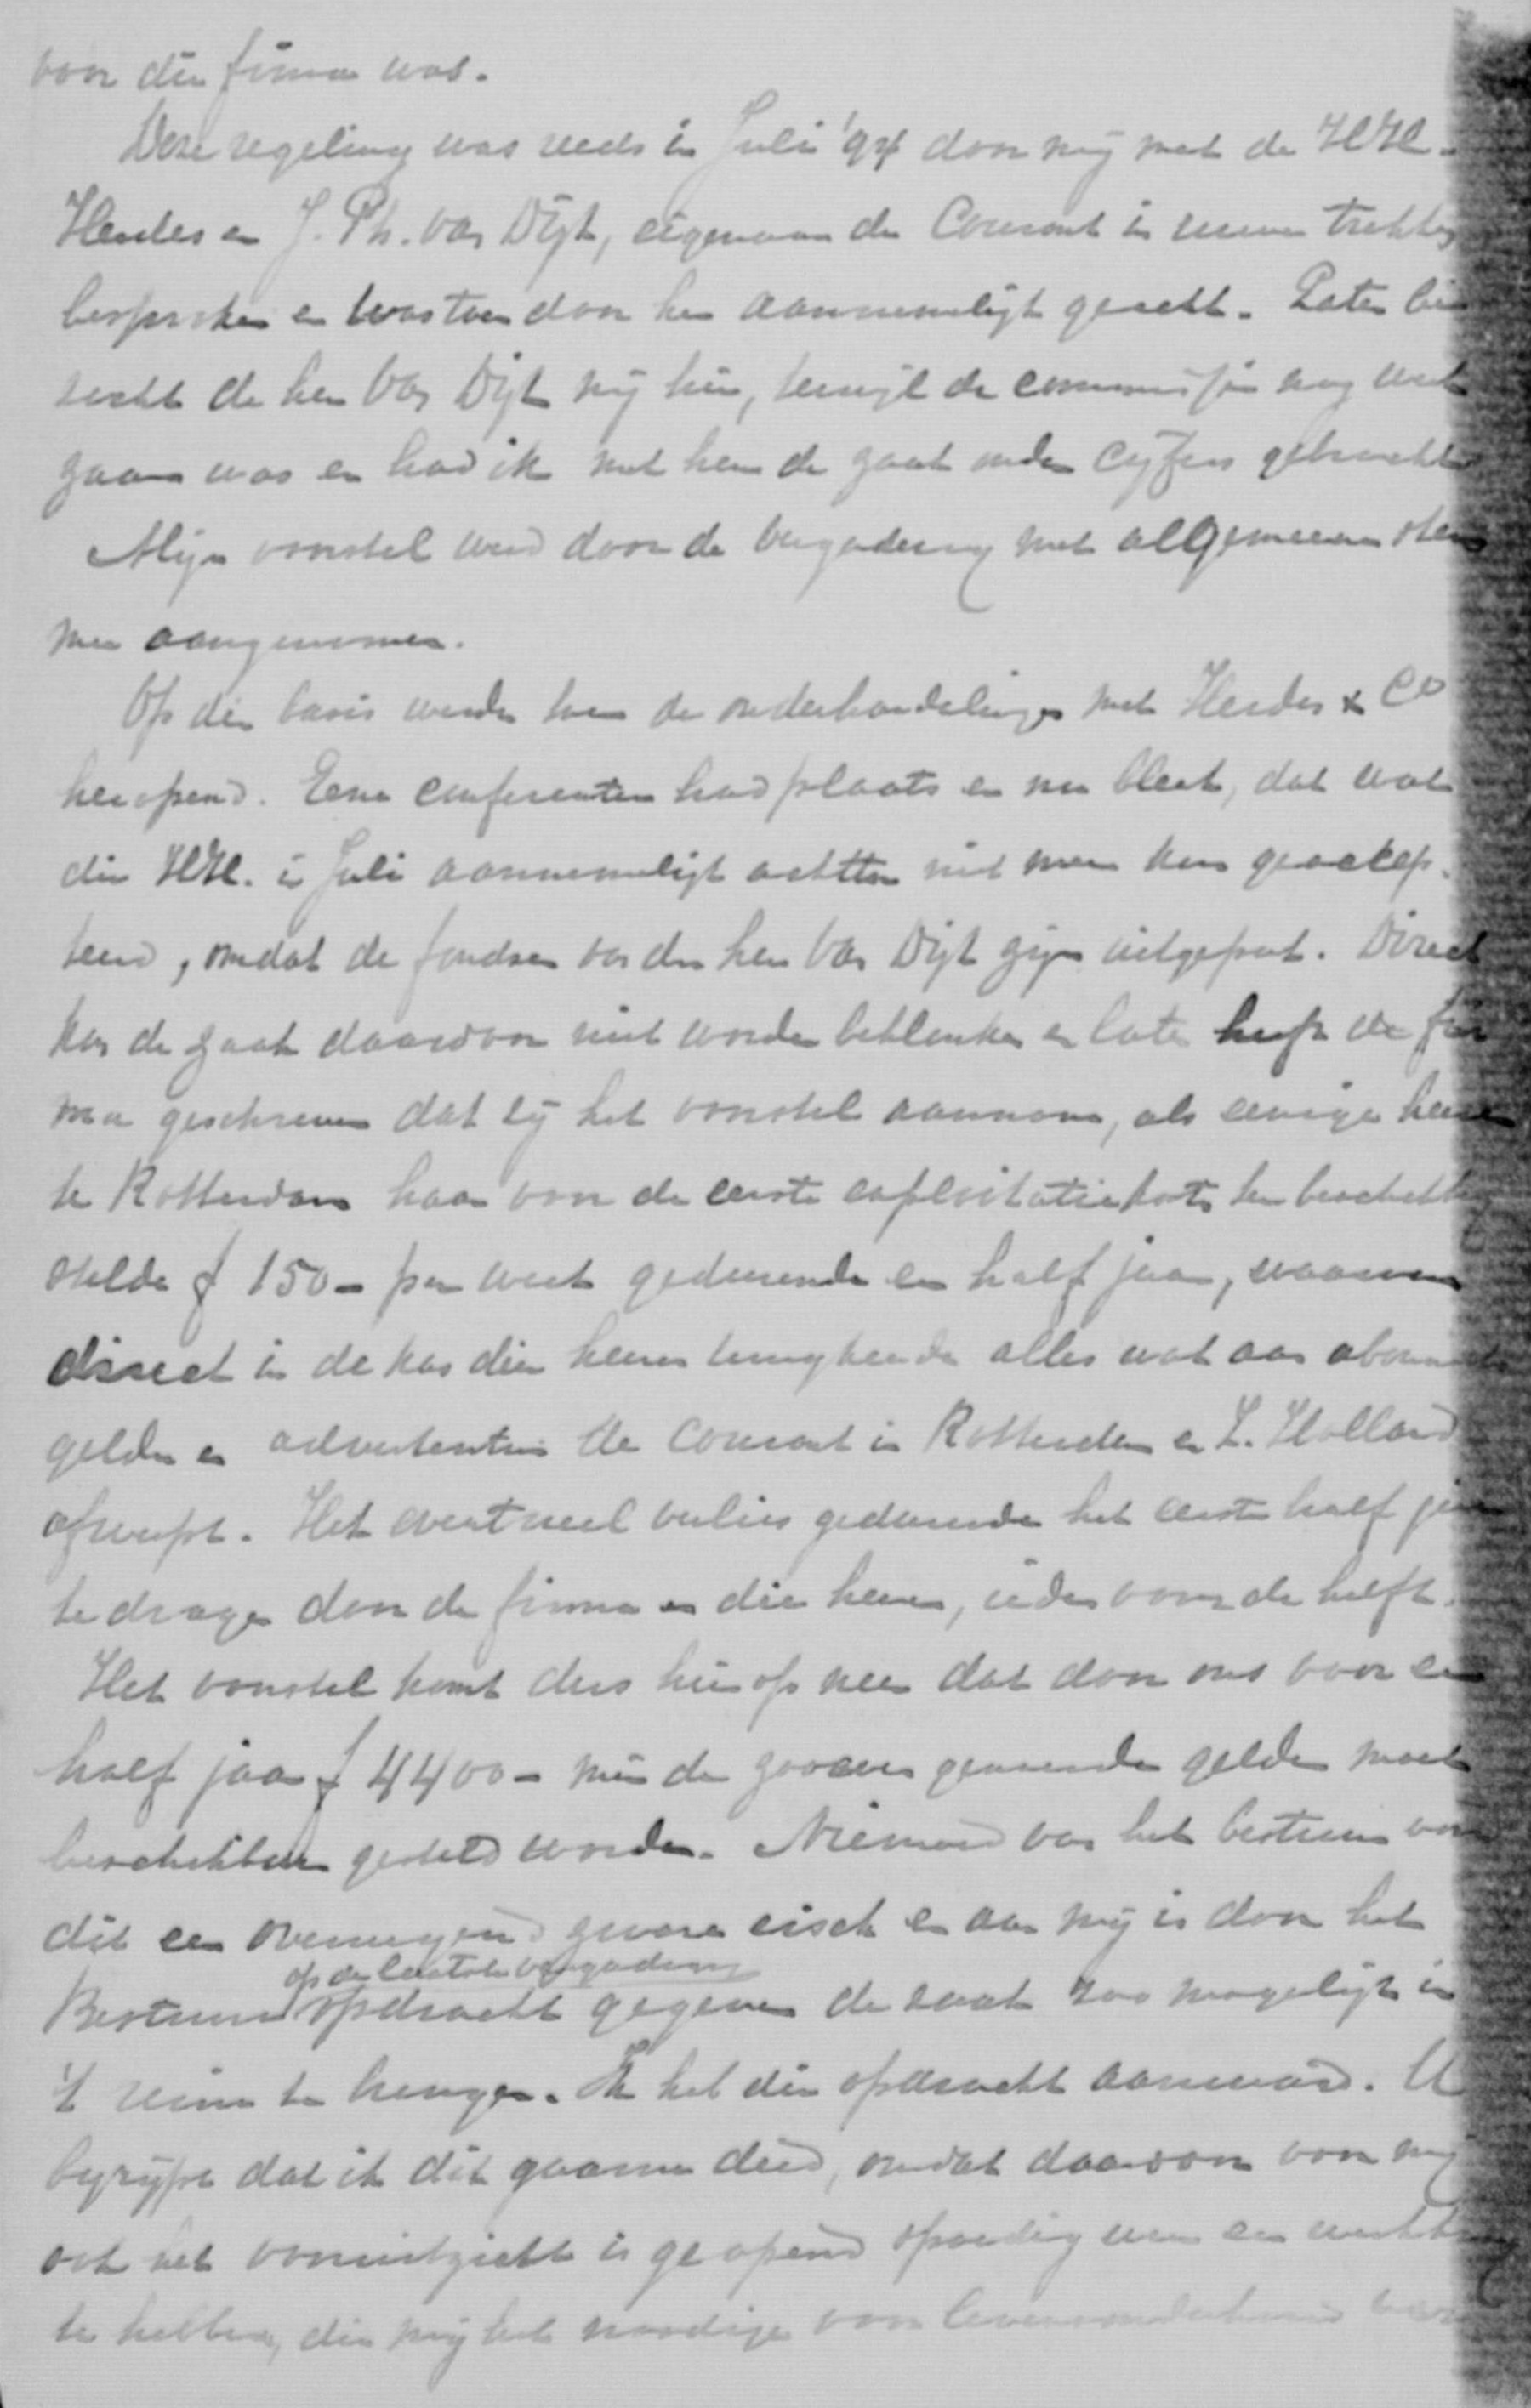 voor die firma was.
Deze regeling was reeds in Juli '94 door mij met de HH.
Herdes en J. Ph. van Dijk, eigenaar der Courant in ruime trekken
besproken en was toen door hen aannemelijk geacht. Later be
zocht de heer Van Dijk mij hier, terwijl de commissie nog werk
zaam was en had ik met hem de zaak onder cijfers gebracht
Mijn voorstel werd door de vergadering met algemeene stem
men aangenomen.
Op die basis werden toen de onderhandelingen met Herdes & Co
heropend. Eene conferentie had plaats en nu bleek, dat wat
die HH. in Juli aannemelijk achtten niet meer kon geaccep-
teerd, omdat de fondsen van den heer Van Dijk zijn uitgeput. Direct
kon de zaak daardoor niet worden beklonken en later heeft de fir
ma geschreven dat zij het voorstel aannam, als eenige heeren
te Rotterdam haar voor de eerste exploitatiekosten ter beschikking
stelde f 150 - per week gedurende een half jaar, waarvan
direct in de kas dier heeren terugkeerde alles wat aan abonnements
gelden en advertentiën de Courant in Rotterdam en Z. Holland
afwerpt. Het eventueel verlies gedurende het eerste half jaar
te dragen door de firma en die heeren, ieder voor de helft.
Het voorstel komt dus hier op neer dat door ons voor een
half jaar f 4400 - min de zooeven genoemde gelden moet
beschikbaar gesteld worden. Niemand van het bestuur vond
dit een overwegend zware eisch en aan mij is door het
Bestuur op de laatste vergadering opdracht gegeven de zaak zoo mogelijk in
't reine te brengen. Ik heb die opdracht aanvaard. U
begrijpt dat ik dit gaarne deed, omdat daardoor voor mij
ook het vooruitzicht is geopend spoedig weer een werkkring
te hebben, die mij het noodige voor levensonderhoud